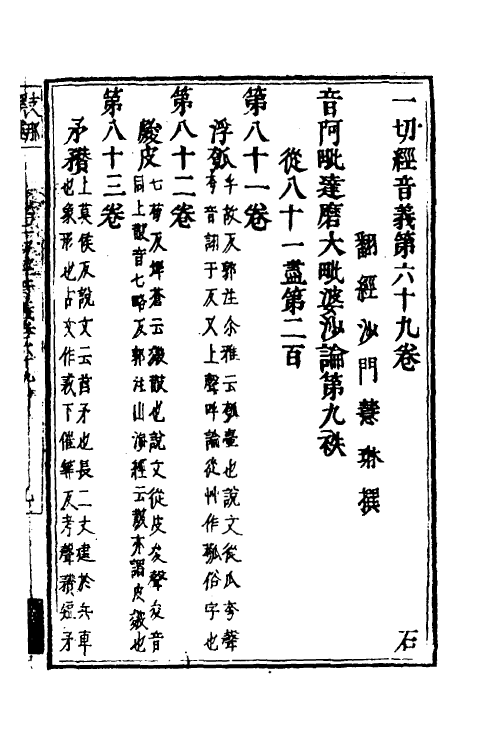 一切經音義第六十九卷 石
翻經沙門慧琳撰
音阿毗達磨大毗婆沙論第九袟
從八十一盡第二百
第八十一卷
浮瓠乎故反郭注尒雅云瓠壷也說文從瓜夸聲
夸音誇于反又上聲呼論從艸作瓡俗字也
第八十二卷
皴皮七荀反埤蒼云皴皵也說文從皮夋聲夋音
同上皵音七略反郭注山海經云皵木謂皮皴也
第八十三卷
矛穳上莫侯反說文云酋矛也長二丈建於兵車
也象形也古文作下催筭反考聲穳短矛